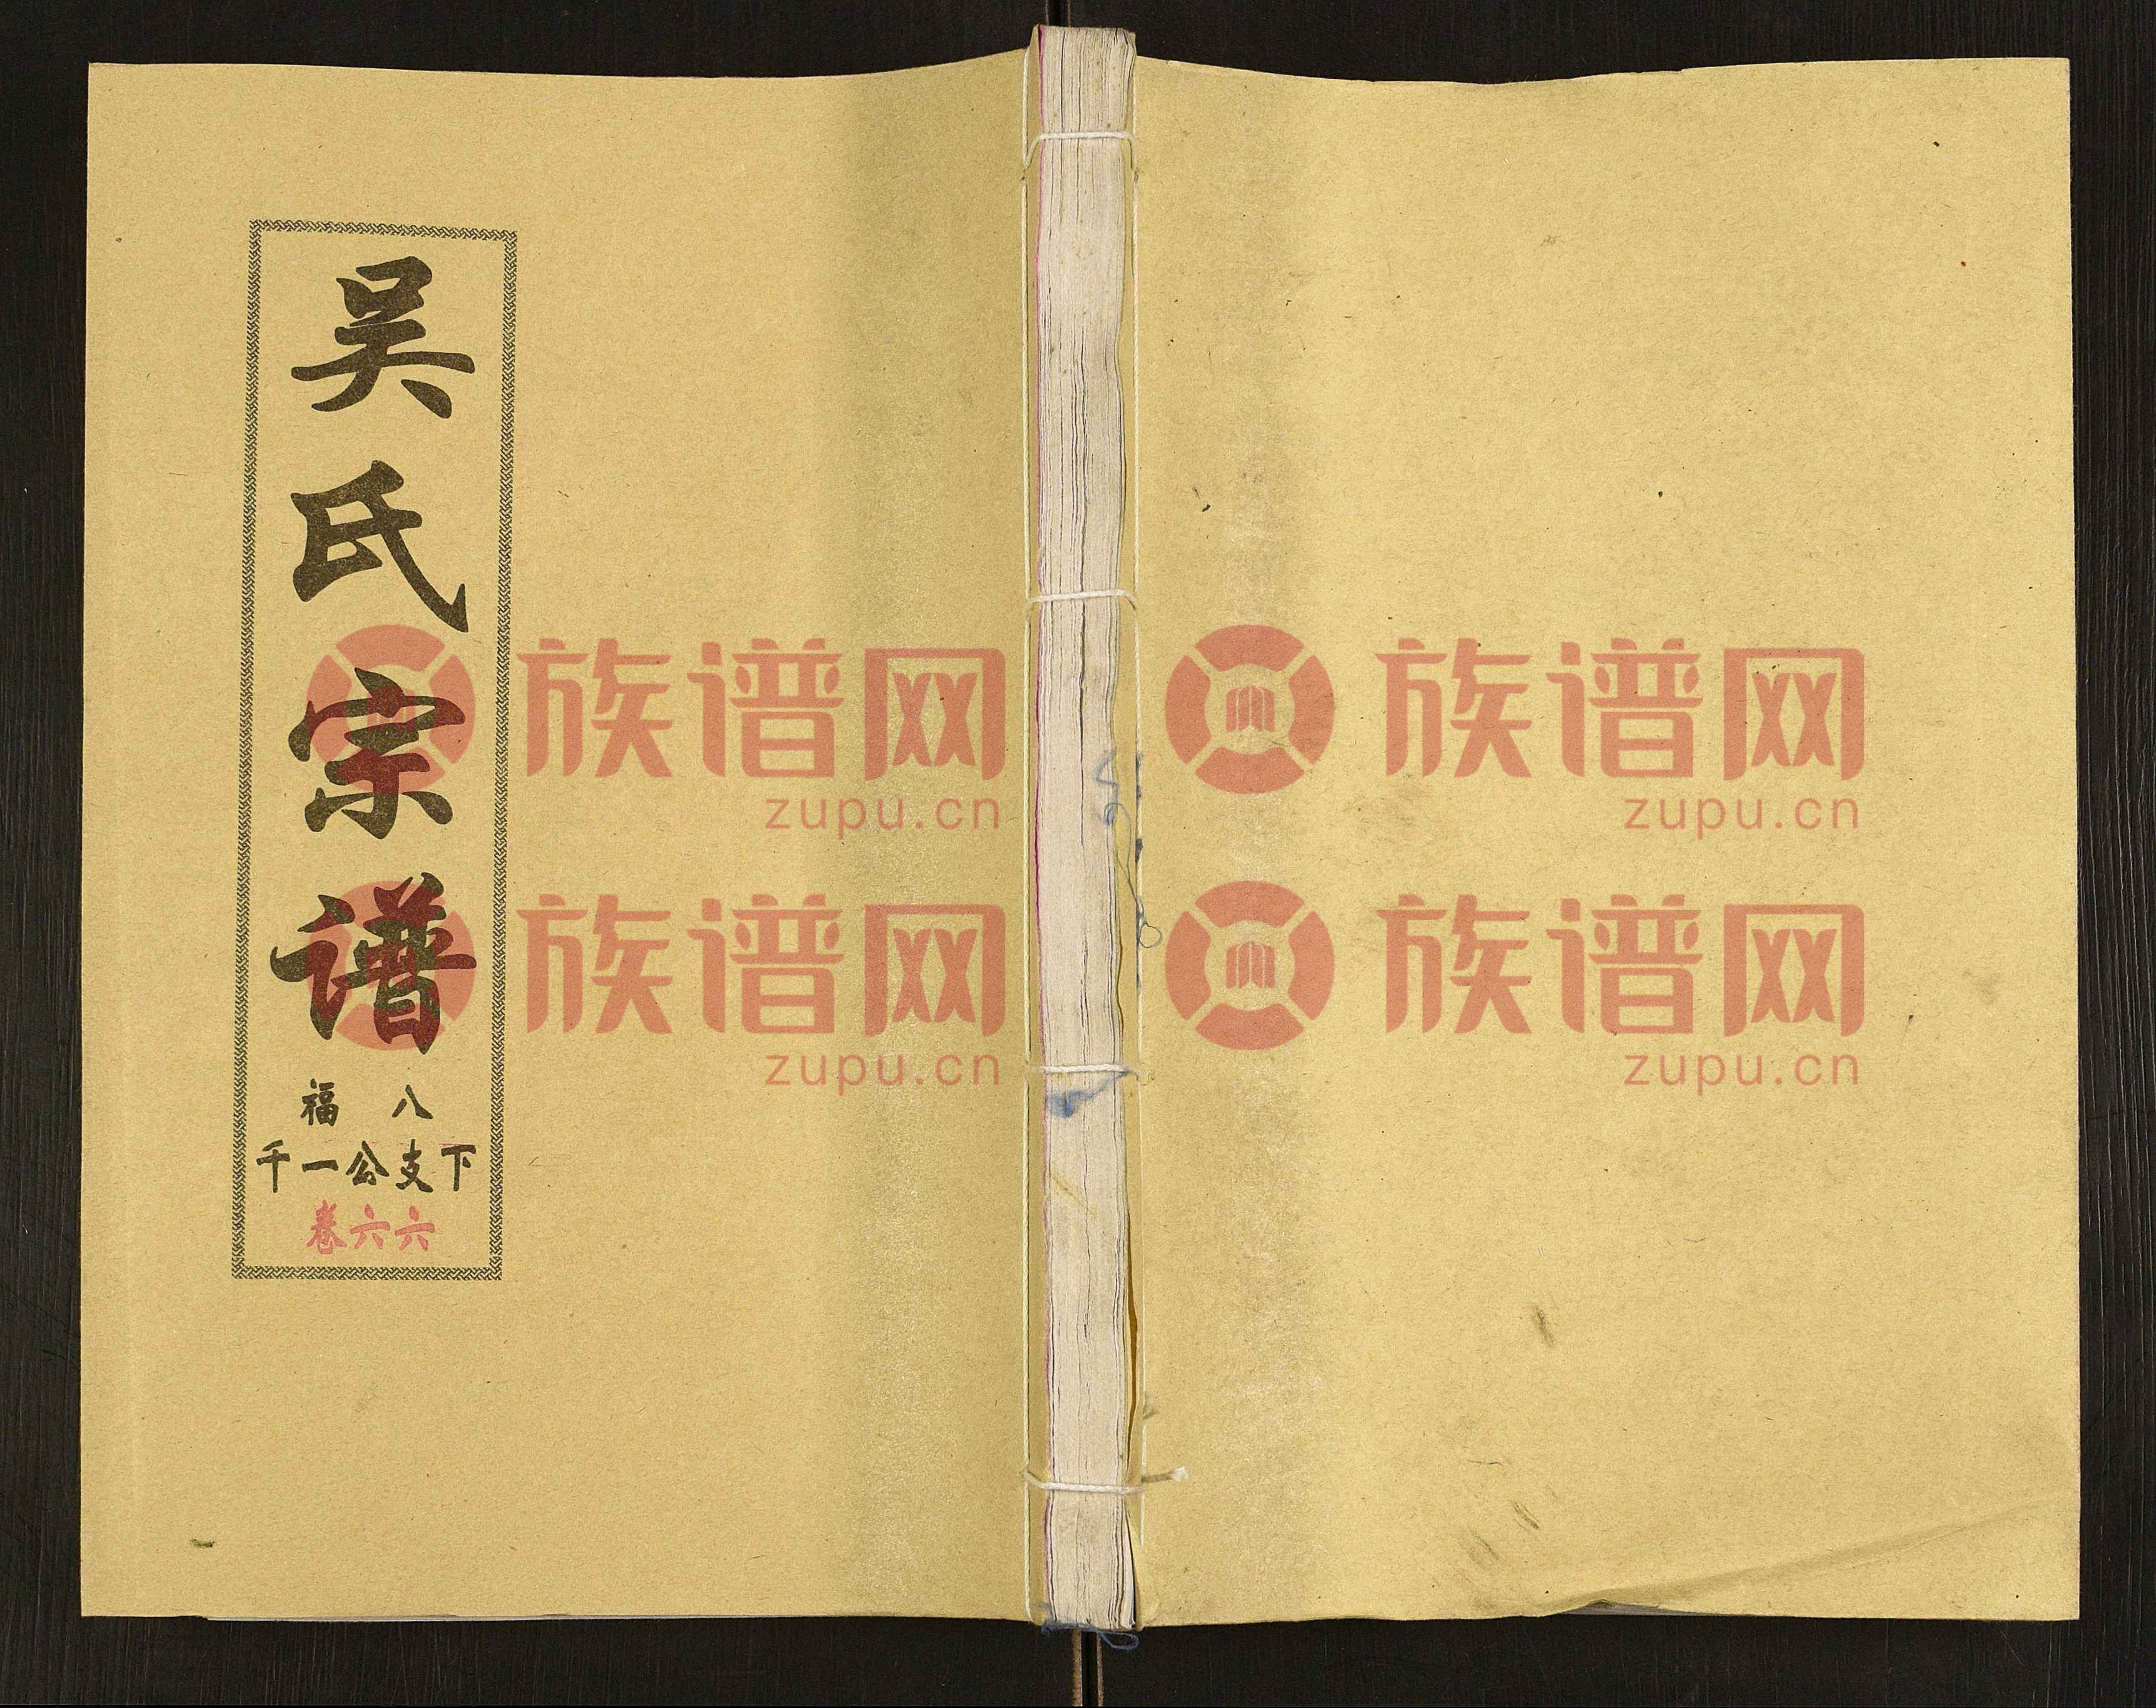 吴氏宗谱
福 八
千一公支下
卷六六
族谱网
zupu.cn
族谱网
zupu.cn
族谱网
zupu.cn
族谱网
zupu.cn